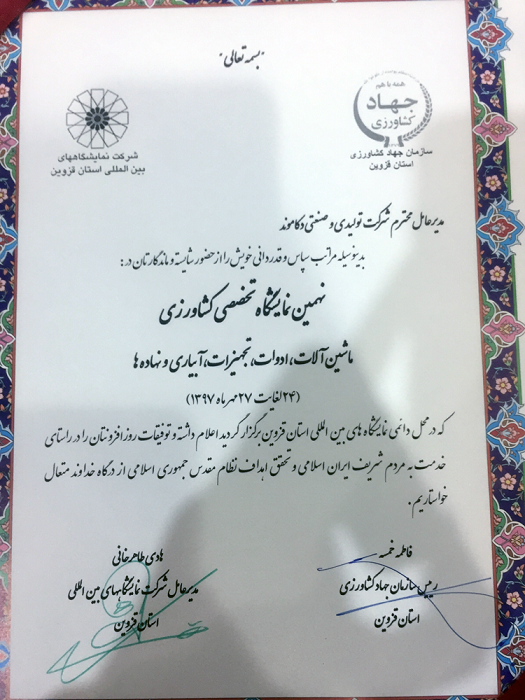 بسمه تعالی
همه با هم
جهاد
کشاورزی
سازمان جهاد کشاورزی
استان قزوین
شرکت نمایشگاههای
بین المللی استان قزوین
مدیرعامل محترم شرکت تولیدی و صنعتی دکاموند
بدینوسیله مراتب سپاس و قدردانی خویش را از حضور شایسته و ماندگارتان در:
نهمین نمایشگاه تخصصی کشاورزی
ماشین آلات، ادوات، تجهیزات، آبیاری و نهاده ها
(۲۴ لغایت ۲۷ مهر ماه ۱۳۹۷)
که در محل دائمی نمایشگاه های بین المللی استان قزوین برگزار گردید اعلام داشته و توفیقات روز افزونتان را در راستای
خدمت به مردم شریف ایران اسلامی و تحقق اهداف نظام مقدس جمهوری اسلامی از درگاه خداوند متعال
خواستاریم.
فاطمه خمسه
رییس سازمان جهاد کشاورزی
استان قزوین
هادی طاهرخانی
مدیرعامل شرکت نمایشگاههای بین المللی
استان قزوین